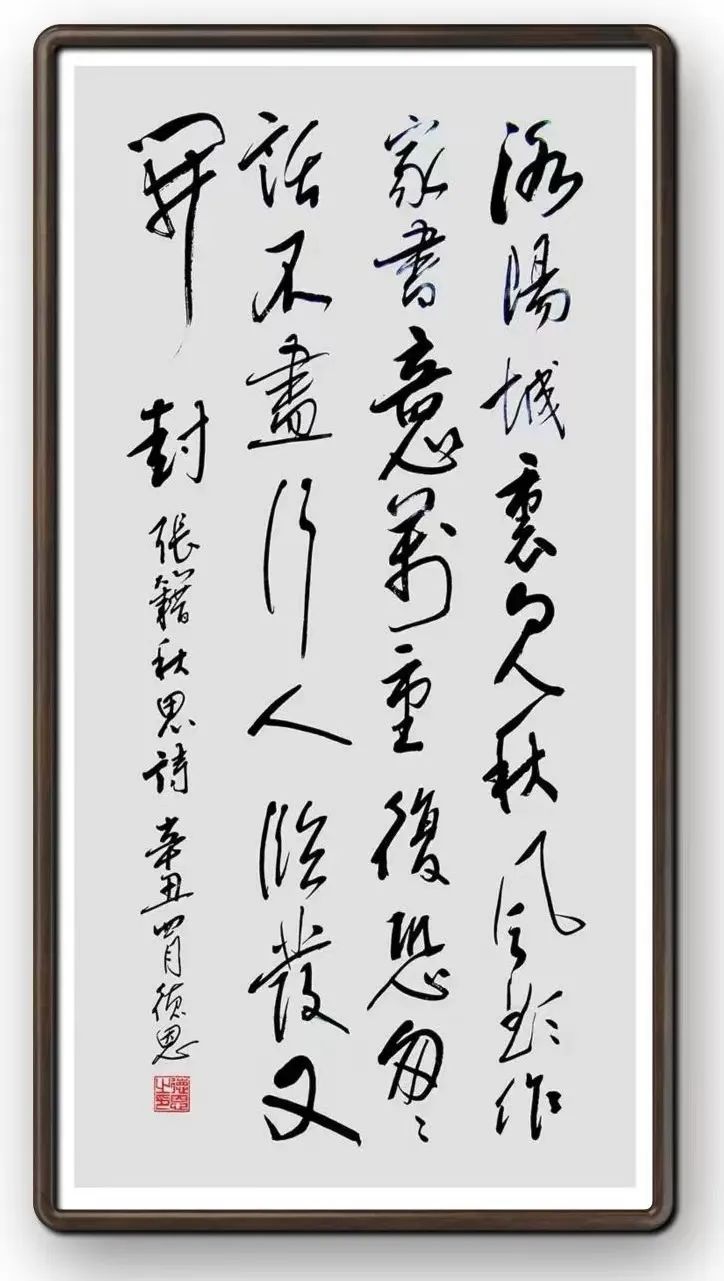 洛陽城裏見秋風欲作
家書意萬重復恐匆〻
話不盡行人臨發又
開封
張籍秋思詩 辛丑四月 德恩
德恩之印